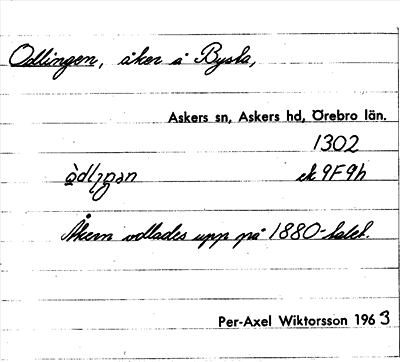 Odlingen, åker å Bysta,
Askers sn, Askers hd, Örebro län.
1302
ek 9F9h
Åkern odlades upp på 1880-talet.
Per-Axel Wiktorsson 1963